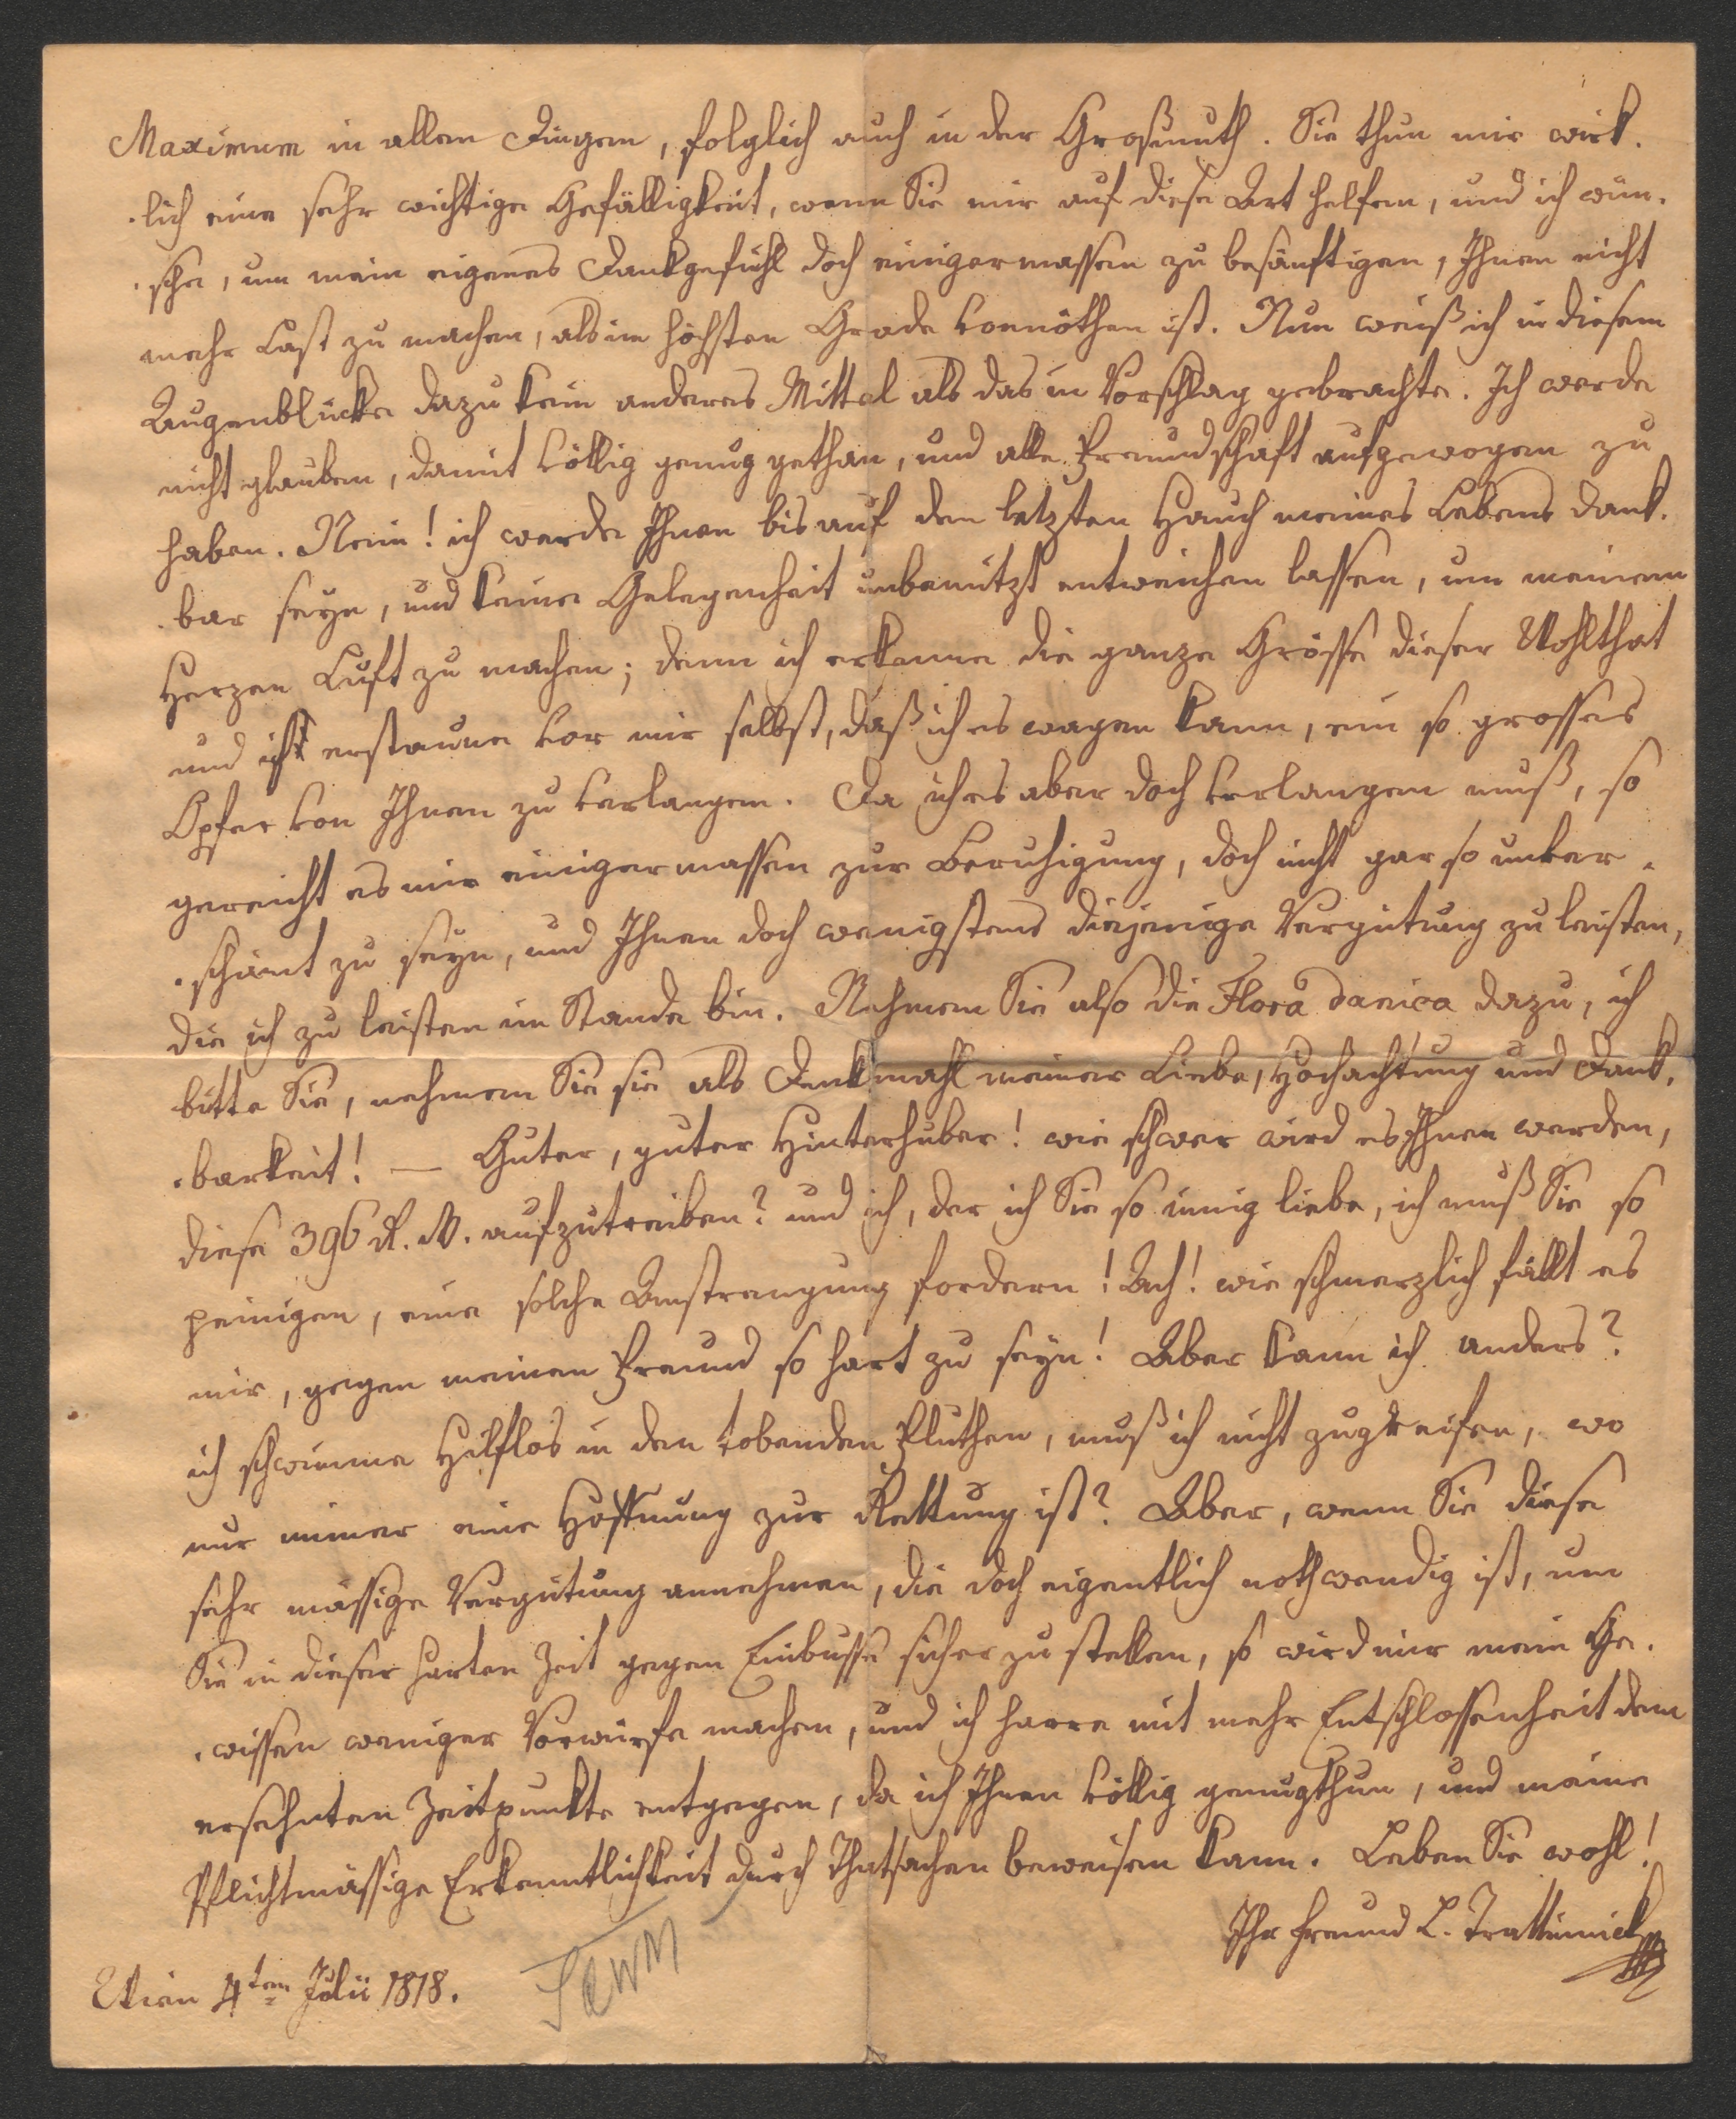 Maximum in allen Dingen, folglich auch in der Großmuth. Sie thun mir wirk.
.lich eine sehr wichtige Gefälligkeit, wenn Sie mir auf diese Art helfen, und ich wün.
.sche, um mein eigenes Dankgefühl doch einigermassen zu besänftigen, Ihnen nicht
mehr Last zu machen, als im höchsten Grade vonnöthen ist. Nun weiß ich in diesem
Augenblicke dazu kein anderes Mittel als das in Vorschlag gebrachte. Ich werde
nicht glauben, damit völlig genug gethan, und alle Freundschaft aufgewogen zu
haben. Nein! ich werde Ihnen bis auf den letzten Hauch meines Lebens dank.
.bar seyn, und keine Gelegenheit unbenützt entweichen lassen, um meinem
Herzen Luft zu machen; denn ich erkenne die ganze Grösse dieser Wohlthat
und ich erstaune vor mir selbst, daß ich es wagen kann, ein so grosses
Opfer von Ihnen zu verlangen. Da ich es aber doch verlangen muß, so
gereicht es mir einigermassen zur Beruhigung, doch nicht gar so unver.
.schämt zu seyn, und Ihnen doch wenigstens diejenige Vergütung zu leisten,
die ich zu leisten im Stande bin. Nehmen Sie also die Flora danica dazu, ich
bitte Sie, nehmen Sie sie als Denkmahl meiner Liebe, Hochachtung und Dank.
.barkeit! — Guter, guter Hinterhuber! wie schwer wird es Ihnen werden,
diese 396 fl. W. aufzutreiben? und ich, der ich Sie so innig liebe, ich muß Sie so
peinigen, eine solche Anstrengung fordern! Ach! wie schmerzlich fällt es
mir, gegen meinen Freund so hart zu seyn! Aber kann ich anders?
ich schwimme Hilflos in den tobenden Fluthen, muß ich nicht zugreifen, wo
nur immer eine Hoffnung zur Rettung ist? Aber, wenn Sie diese
sehr mässige Vergütung annehmen, die doch eigentlich nothwendig ist, um
Sie in dieser harten Zeit gegen Einbusse sicher zu stellen, so wird mir mein Ge.
.wissen weniger Vorwürfe machen, und ich harre mit mehr Entschlossenheit dem
ersehnten Zeitpunkte entgegen, da ich Ihnen völlig genugthun, und meine
Pflichtmässige Erkenntlichkeit durch Thatsachen beweisen kann. Leben Sie wohl!
Ihr Freund L. Trattinnick
Wien 4ten Julii 1818.